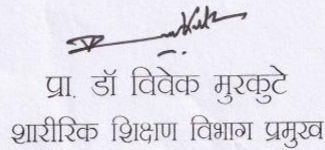 प्रा. डॉ विवेक मुरकुटे
शारीरिक शिक्षण विभाग प्रमुख